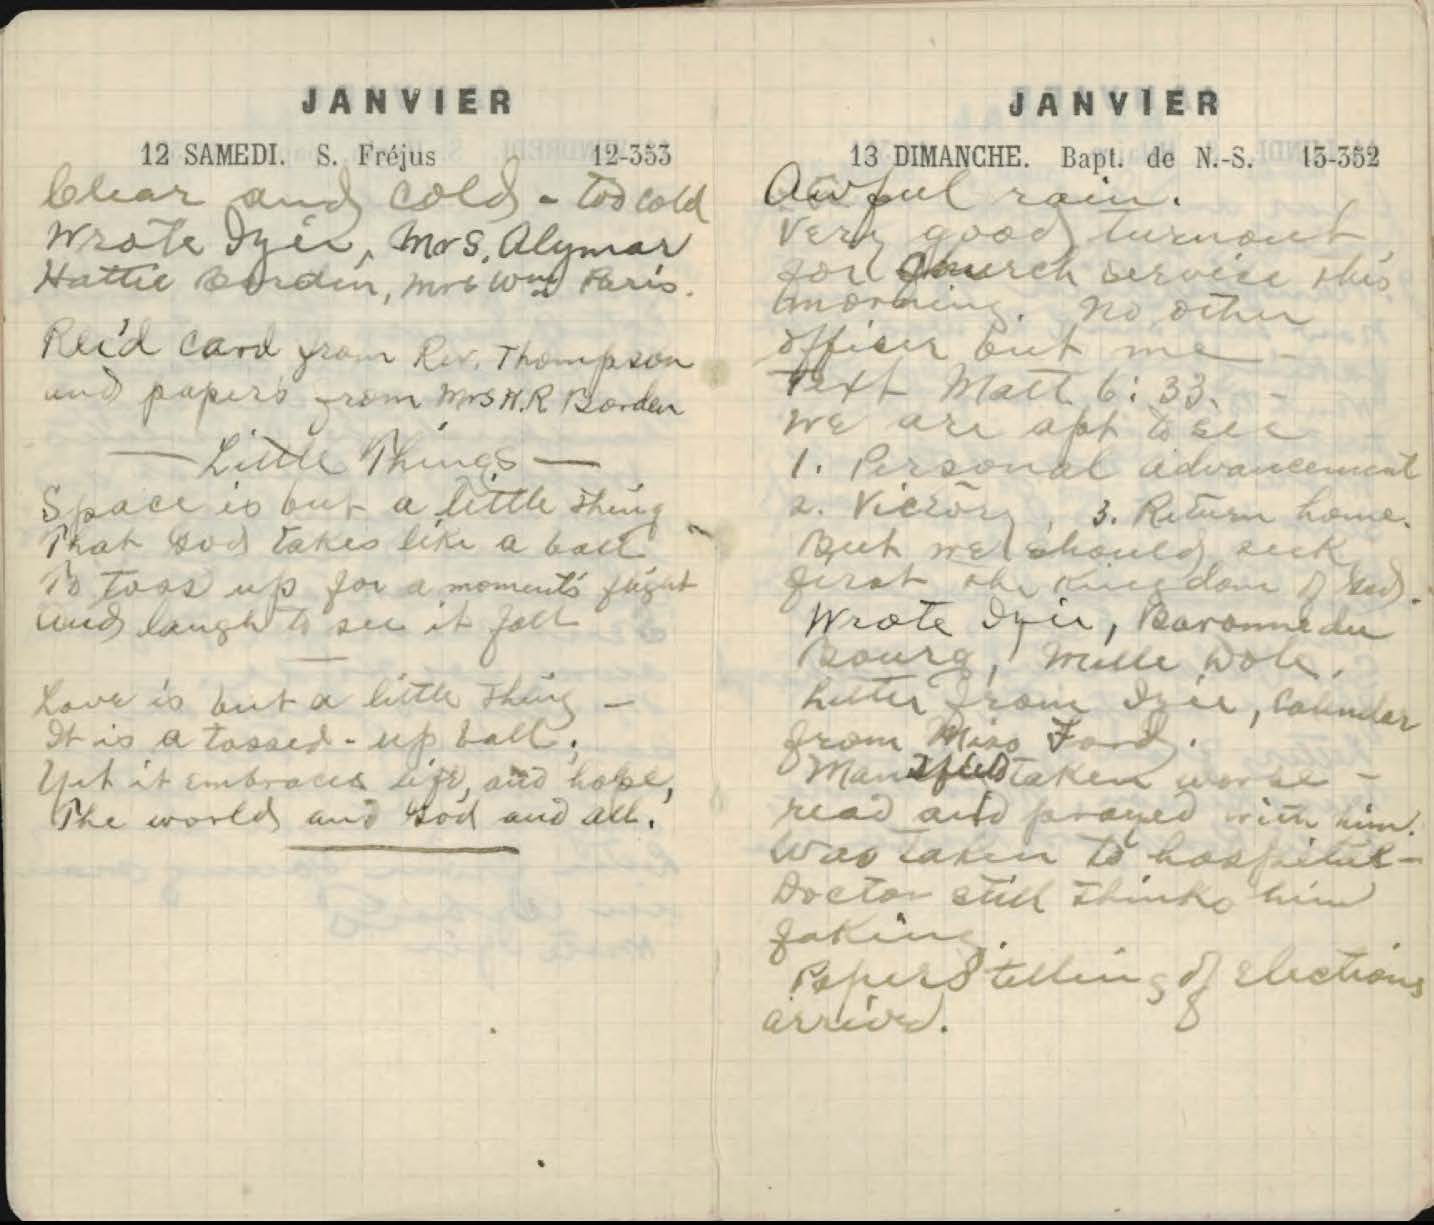 JANVIER
12 SAMEDI. S. Fréjus 12-353
Clear and cold - too cold
Wrote Izie, Mrs. Alymar
Hattie Borden, Mrs Wm Paris.
Rec'd card from Rev. Thompson
and papers from Mrs H.R Borden
— Little Things —
Space is but a little thing
That God takes like a ball
To toss up for a moment's flight
And laugh to see it fall
—
Love is but a little thing -
It is a tossed-up ball;
Yet it embraces life, and hope,
The world and God and all.
JANVIER
13 DIMANCHE. Bapt. de N.-S. 13-352
Awful rain.
Very good turnout
for church service this
morning. No other
officer but me -
Text Matt 6:33. -
We are apt to see
1. Personal advancement
2. Victory, 3. Return home.
But we should seek
first the Kingdom of God.
Wrote Izie, Baronne du
Bourg, Mlle Dole.
Letter from Izie, Calendar
from Miss Ford.
Mansfield taken worse -
read and prayed with him.
Was taken to hospital -
Doctor still thinks him
faking.
Papers telling of elections
arrived.